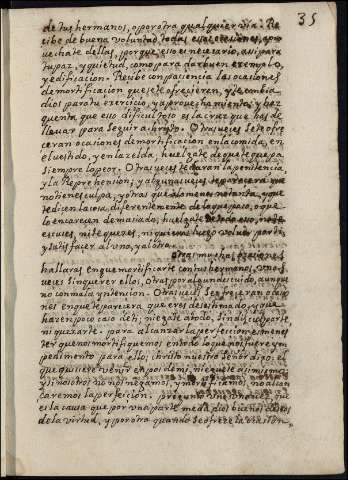 35
de tus hermanos, o por otra qualquier via. Re
cibe de buena voluntad todas essas ocasiones, apro
uechate dellas, porque esso es necesario, assi para
tu paz, y quietud, como para dar buen exemplo,
y edificacion. Recibe con paciencia las ocasiones
de mortificacion que se te ofrecieren, y te embia
dios para tu exercicio, y aprouechamiento, y haz
quenta que esso dificultoso es la cruz que has de
lleuar para seguir a christo. Otras ueces se te ofre
ceran ocasiones de mortificacion en la comida, en
el uestido, y en la zelda, huelgate de que te quepa
siempre lo peor. Otras ueces te daran la penitencia
y la Reprehension; y algunas ueces te parecera que
no tienes culpa, y otras que a lo menos no tanta, y que
te dicen la cosa diferentemente de lo que paso, o que
lo encarecen demasiado, huelgate de todo esso, no te
escuses, ni te quexes, ni quieras luego voluer por ti,
y satisfacer al uno, y al otro.
Otras muchas ocasiones
hallaras en que mortificarte con tus hermanos, unas
ueces sin querer ellos, otras por algun descuido, aunque
no con mala yntencion. Otras ueces se ofreceran algu
nas en que te parecera que eres desestimado, y que
hacen poco caso de ti; niegate a todo, sin disculparte,
ni quexarte. para alcanzar la perfeccion es menes
ter que nos mortifiquemos en todo lo que nos fuere ym
pedimento para ello; christo nuestro señor dijo: el
que quisiere venir en pos de mi, nieguese a si mismo:
y si nosotros no nos negamos, y mortificamos, no alcan
zaremos la perfeccion. pregunto una vez, que
es la causa que por una parte me da dios buenos deseos
de la virtud, y por otra quando se ofrece la ocasion,